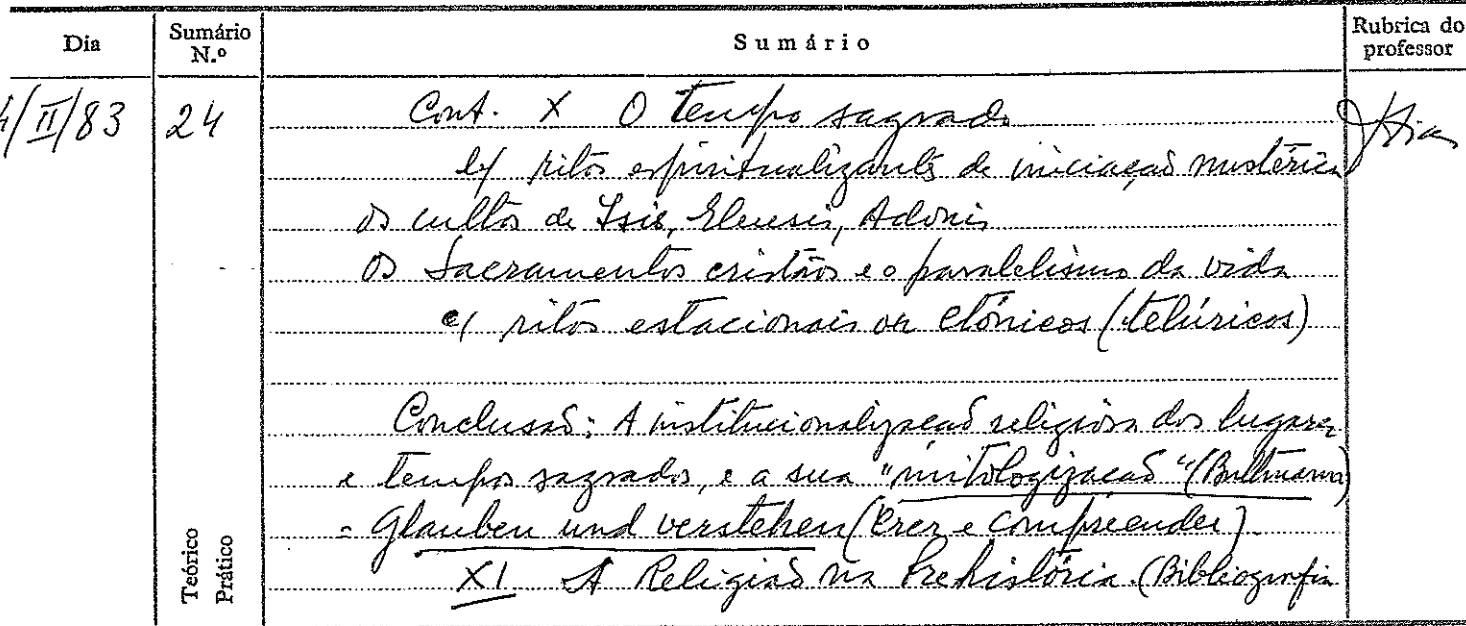 Dia Sumário N.º Sumário Rubrica do professor
/II/83 24 Cont. X O tempo sagrado
b) ritos espiritualizantes de iniciação mistérica
os cultos de Isis, Eleusis, Adonis
Os Sacramentos cristãos e o paralelismo da vida
c) ritos estacionais ou ctónicos (telúricos)
Conclusão: A institucionalização religiosa dos lugares
e tempos sagrados, e a sua "mitologização" (Bultmann)
= Glauben und verstehen (Crer e compreender)
XI A Religião na Prehistória. (Bibliografia
Teórico
Prático